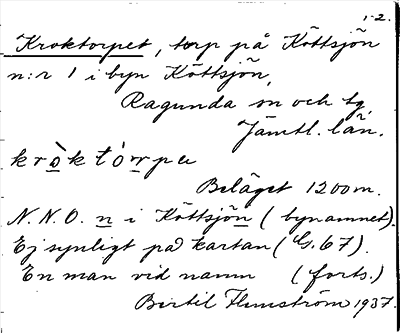 1-2.
Kroktorpet, torp på Köttsjön
n:r 1 i byn Köttsjön,
Ragunda sn och tg,
Jämtl. län.
krò̱którpe
Beläget 1200 m.
N.N.O. n i Köttsjön (bynamnet).
Ej synligt på kartan (G. 67).
En man vid namn (forts.)
Bertil Flemström 1937.